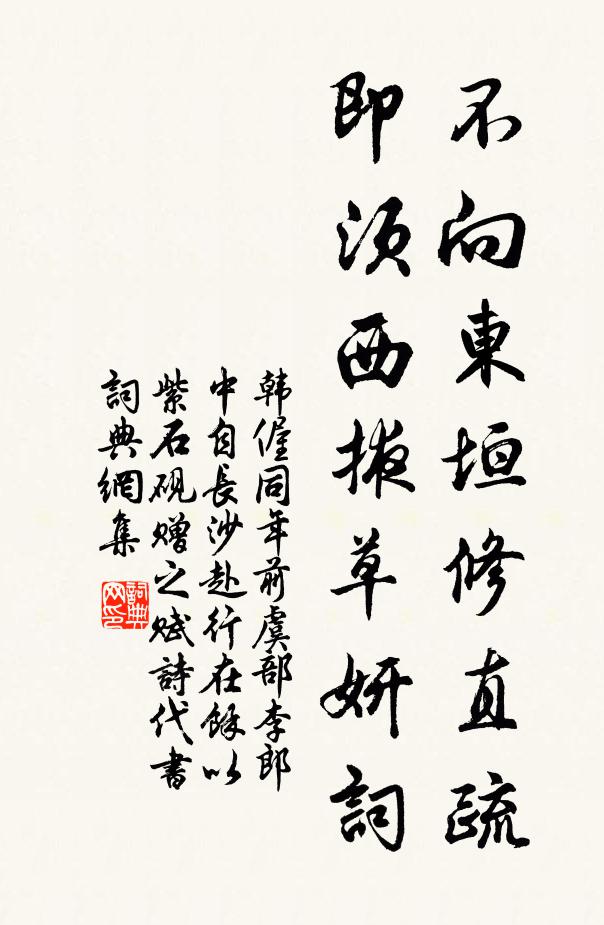 不向東垣修直疏
即須西掖草妍詞
韩偓同年前虞部李郎
中自長沙赴行在餘以
紫石砚赠之赋詩代書
詞典網集
詞典网印